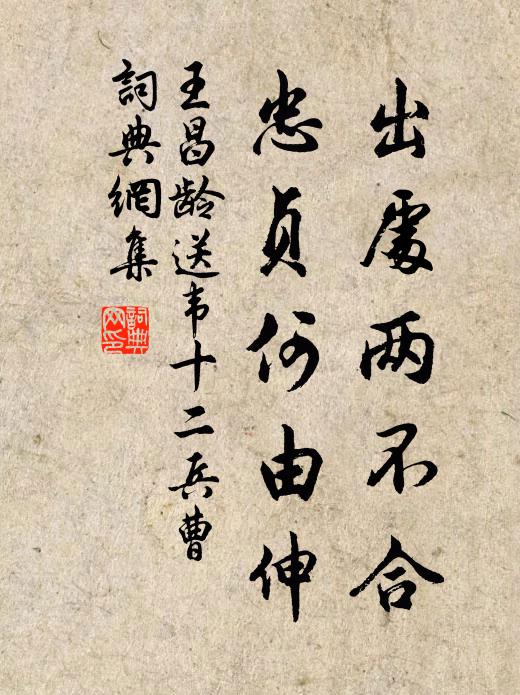 出處两不合
忠貞何由伸
王昌龄送韦十二兵曹
詞典網集
詞典網印